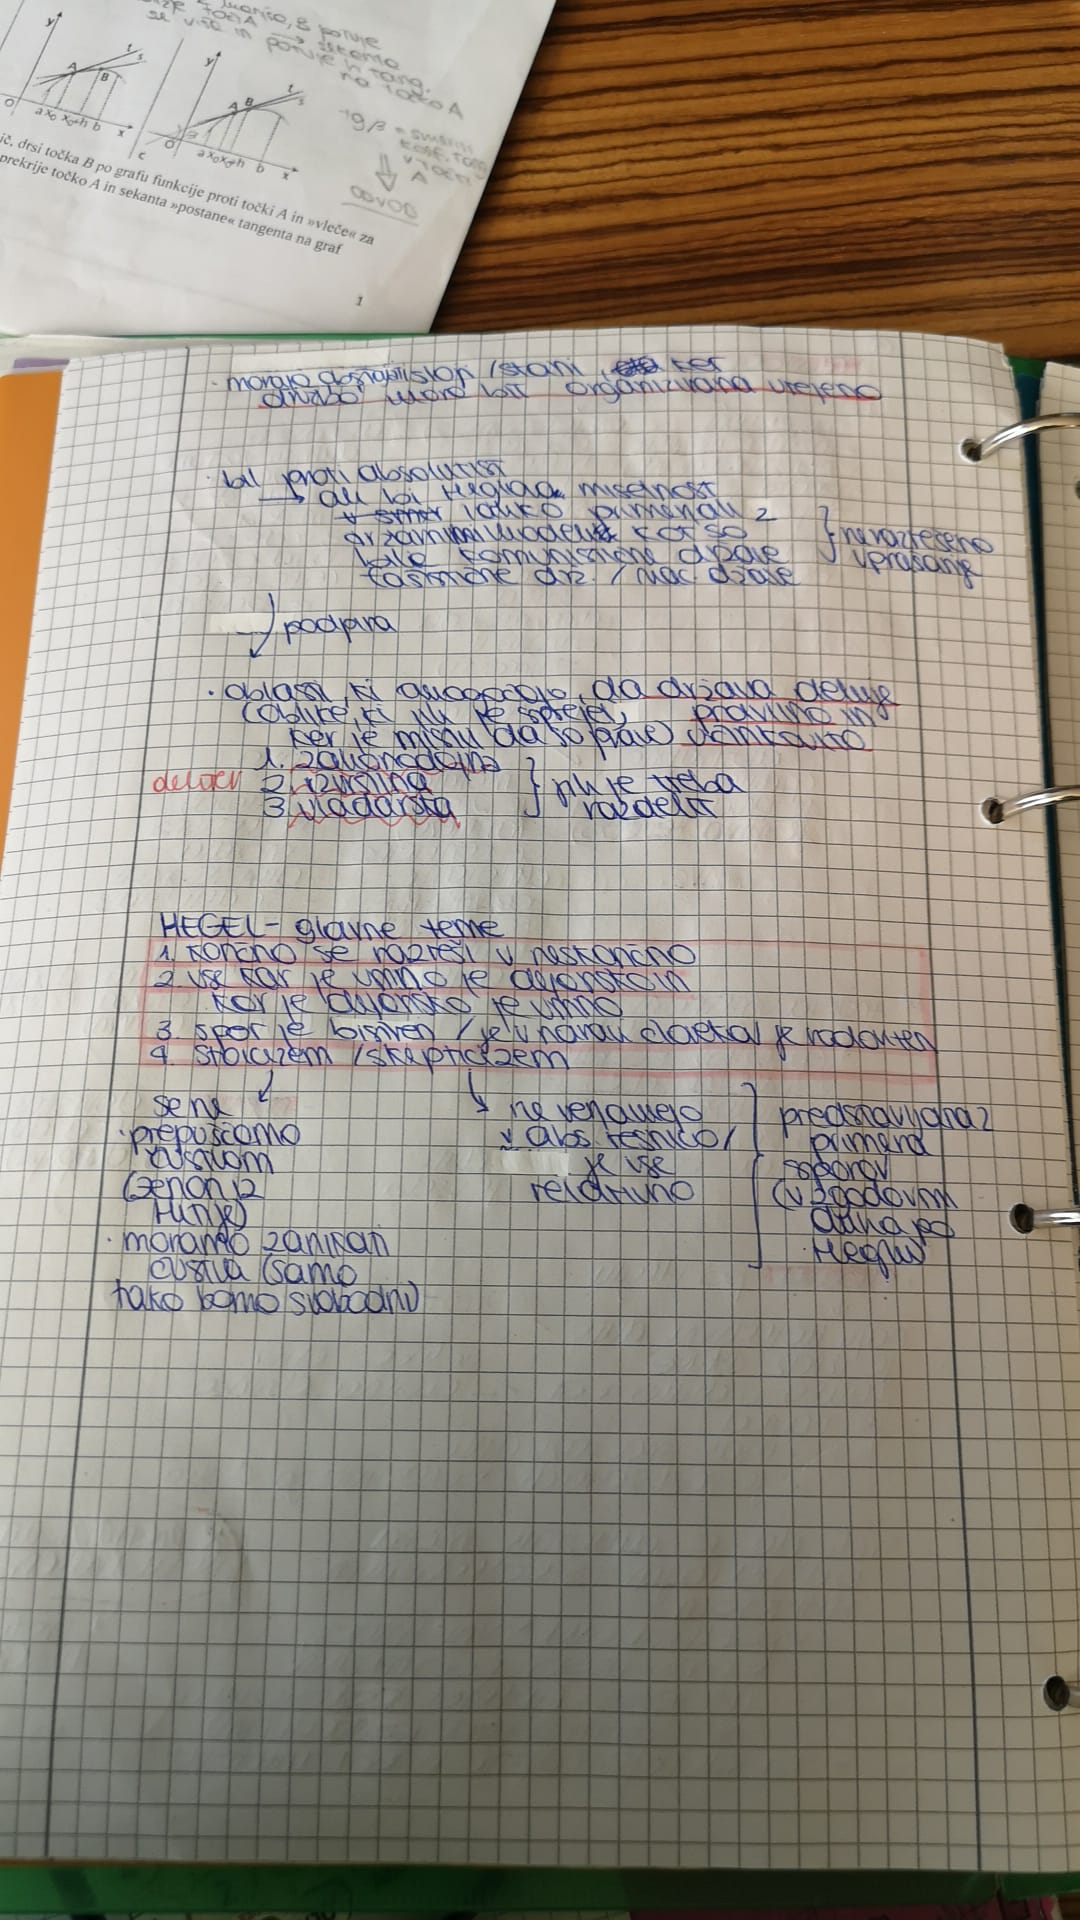 se više in
na točko A
y
y
A
B
t
s
A
B
t
s
O
a x₀ x₀+h b
x
O
a x₀ x₀+h b
x
c
tg β =
A
ODVOD
ič, drsi točka B po grafu funkcije proti točki A in »vleče« za
prekrije točko A in sekanta »postane« tangenta na graf
1
· morajo obstajati sloji / stani, ker
družba mora bit organizirana urejeno
· bil proti absolutist
→ ali bi Heglova miselnost
lahko primerjali z
državnimi modeli kot so
bile komunistične države
fašistične drž. / nac. države
} nerazrešeno
vprašanje
podpira
· oblasti, ki omogočajo, da država deluje
(oblike, ki jih je sprejel, pravilno in
ker je mislu da so prave) učinkovito
1. zakonodajna
delitev 2. izvršilna } jih je treba
3. vladarska razdelit
HEGEL - glavne teme
1. končno se razreši v neskončno
2. vse kar je umno je dejansko in
kar je dejansko je umno
3. spor je bistven / je v naravi človeka / je radoveden
4. stoicizem / skepticizem
se ne
· prepuščamo
čustvom
(Zenon iz
Kitija)
· moramo zanikati
čustva (samo
tako bomo svobodni)
ne verjamejo
v abs. resnico /
je vse
relativno
predstavljata 2
primera
sporov
(v zgodovini
duha po
Heglu